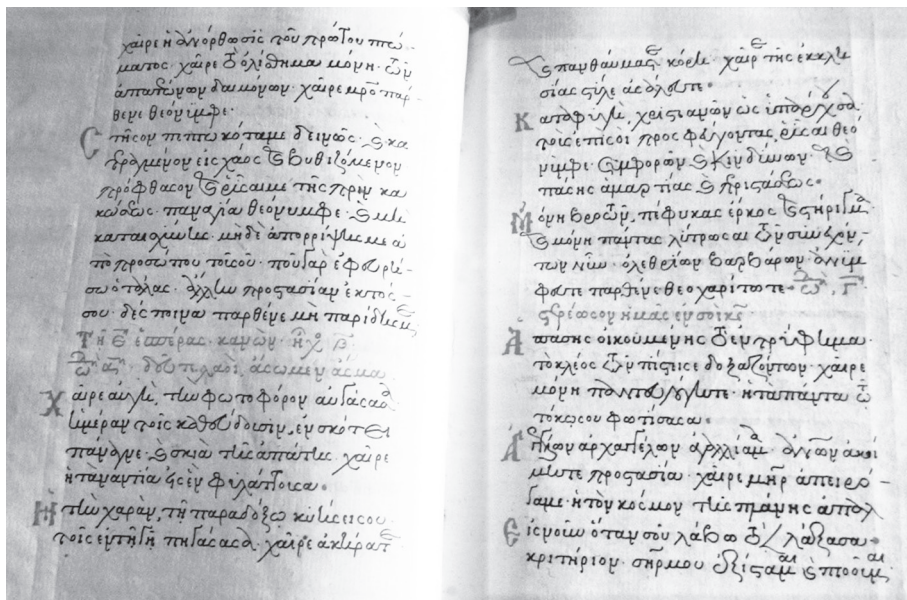 χαῖρε ἡ διόρθωσις τοῦ πρώτου πτώ-
ματος· χαῖρε τὸ ὀλίσθημα μόνη· τῶν
ἁπάντων δαιμόνων· χαῖρε μρο παρ-
θενε θεόνυμφε·
Στῆσον πεπτωκότα με δεινῶς· καὶ
εἰς χάος καὶ βυθιζόμενον
πρόφθασον καὶ ῥῦσαι με τῆς πρὶν κα
κώσεως· παναγία θεόνυμφε· καὶ μὴ
καταισχύνης μηδὲ ἀπορρίψης με ἀ
πὸ προσώπου τοῦ σοῦ· ποῦ γὰρ ἐφευρή-
σω ὁ τάλας· ἄλλην προστασίαν ἐκτός
σου· δέσποινα παρθένε μὴ παρίδης με
Τῇ ε ἑσπέρας κανὼν· ἦχ β
ᾠ α δεῦτε λαοὶ ἄσωμεν ἄσμα
Χαῖρε αὐγὴ, τὴν φωτοφόρον αὐγάσασα
ἡμέραν τοῖς καθεύδουσιν, ἐν σκότει
πάναγνε· καὶ σκιᾷ τῆς ἀπάτης· χαῖρε
ἡ τἀναντία
Ἡ τὴν χαρὰν, τῇ παραδόξω κυήσει σου
τοῖς ἐν τῇ γῇ πηγάσασα, χαῖρε ἀκήρατε
καὶ πανθαύμαστε κόρη· χαῖρε τῆς ἐκκλη
σίας στύλε ἀσάλευτε·
Καταφυγὴ, χριστιανῶν ὡς ὑπάρχουσα
τοῖς ἐπὶ σοὶ προσφεύγοντας, ῥῦσαι θεό
νυμφε· συμφορῶν καὶ κινδύνων· καὶ
πάσης ἁμαρτίας καὶ κρίσεως·
Μόνη βροτῶν, πέφυκας ἕρκος καὶ στήριγμα
καὶ μόνη πάντας λύτρωσαι τῶν συνεχόν-
των νῦν· ὀλεθρίων βαρβάρων· ἀνύμ
φευτε παρθένε θεοχαρίτωτε· ᾠ, γ
στερέωσον ἡμᾶς ἐν σοὶ κε
Ἁπάσης οἰκουμένης τὸ ἐντρύφημα·
τὸ κλέος τῶν πίστει σε δοξαζόντων· χαῖρε
μόνη πολυύμνητε· ἡ τὰ πάντα τῶ
τόκω σου φωτίσασα·
Ἁγίων ἀρχαγγέλων ἀγαλλίαμα· ἀνθρώπων
προστασία· χαῖρε μηρ ἀπειρό-
γαμε· ἡ τὸν κόσμον τῆς πλάνης ἀπαλ
Εἰς νοῦν ὅταν σου λάβω τὸ / λάξασα·
κριτήριον· ἐξίσταμαι καὶ πτοοῦμαι